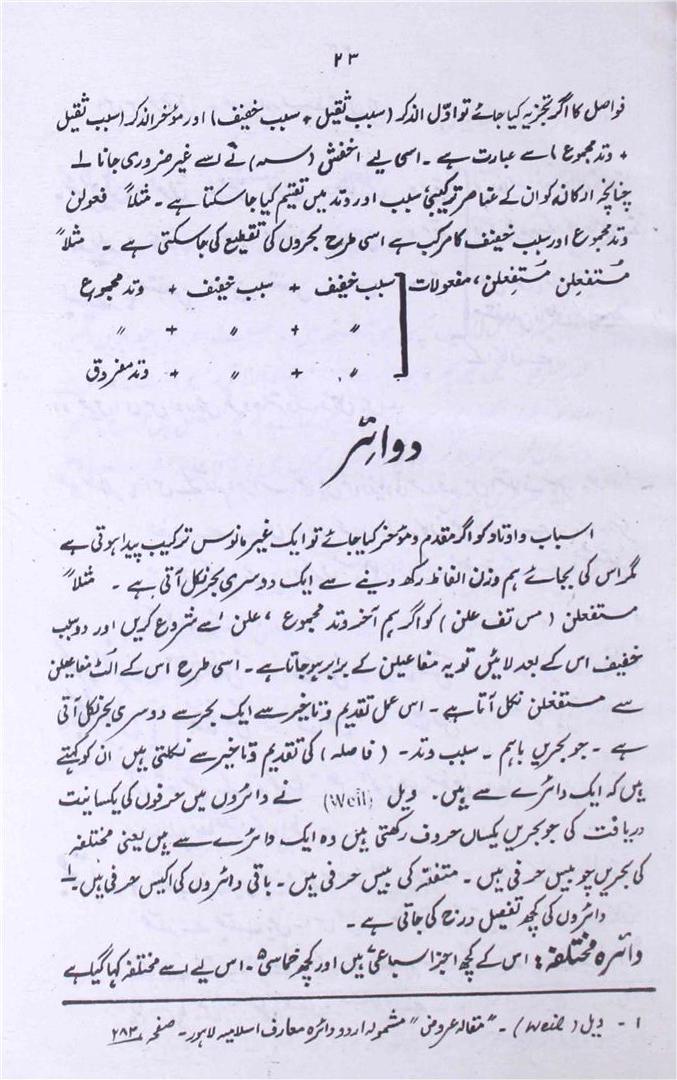 ۲۳
فواصل کا اگر تجزیہ کیا جائے تو اوّل الذکر (سبب ثقیل + سبب خفیف) اور موٴخر الذکر (سبب ثقیل
+ وتد مجموع) سے عبارت ہے۔ اسی لیے اخفش (سہ) نے اسے غیر ضروری جانا۔
چنانچہ ارکان کو ان کے عناصر ترکیبی سبب اور وتد میں تقسیم کیا جاسکتا ہے۔ مثلاً فعولن
وتد مجموع اور سبب خفیف کا مرکب ہے اسی طرح بحروں کی تقطیع کی جاسکتی ہے۔ مثلاً
مُستفعلن مُستفعلن، مفعولات ] سبب خفیف + سبب خفیف + وتد مجموع
〃 + 〃 + 〃
〃 + 〃 + وتد مفروق
دوائر
اسباب و اوتاد کو اگر مقدم و مؤخر کیا جائے تو ایک غیر مانوس ترکیب پیدا ہوتی ہے
مگر اس کی بجائے ہم وزن الفاظ رکھ دینے سے ایک دوسری بحر نکل آتی ہے۔ مثلاً
مستفعلن (مس تف علن) کو اگر ہم آخر وتد مجموع، علن سے شروع کریں اور دو سبب
خفیف اس کے بعد لائیں تو یہ مفاعیلن کے برابر ہو جاتا ہے۔ اسی طرح اس کے الٹ مفاعیلن
سے مستفعلن نکل آتا ہے۔ اس عمل تقدیم و تاخیر سے ایک بحر سے دوسری بحر نکل آتی
ہے۔ جو بحریں باہم۔ سبب وتد۔ (فاصلہ) کی تقدیم و تاخیر سے نکلتی ہیں ان کو کہتے
ہیں کہ ایک دائرے سے ہیں۔ ویل (Weil) نے دائروں میں حرفوں کی یکسانیت
دریافت کی جو بحریں یکساں حروف رکھتی ہیں وہ ایک دائرے سے ہیں یعنی مختلفہ
کی بحریں چوبیس حرفی ہیں۔ متفقہ کی بیس حرفی ہیں۔ باقی دائروں کی اکیس حرفی ہیں۔۱
دائروں کی کچھ تفصیل درج کی جاتی ہے۔
دائرہ مختلفہ: اس کے کچھ اجزا سباعی ہیں اور کچھ خماسی۔ اس لیے اسے مختلفہ کہا گیا ہے
۱ - ویل (Weil)۔ "مقالہ عروض" مشمولہ اردو دائرہ معارف اسلامیہ لاہور۔ صفحہ ۲۸۳